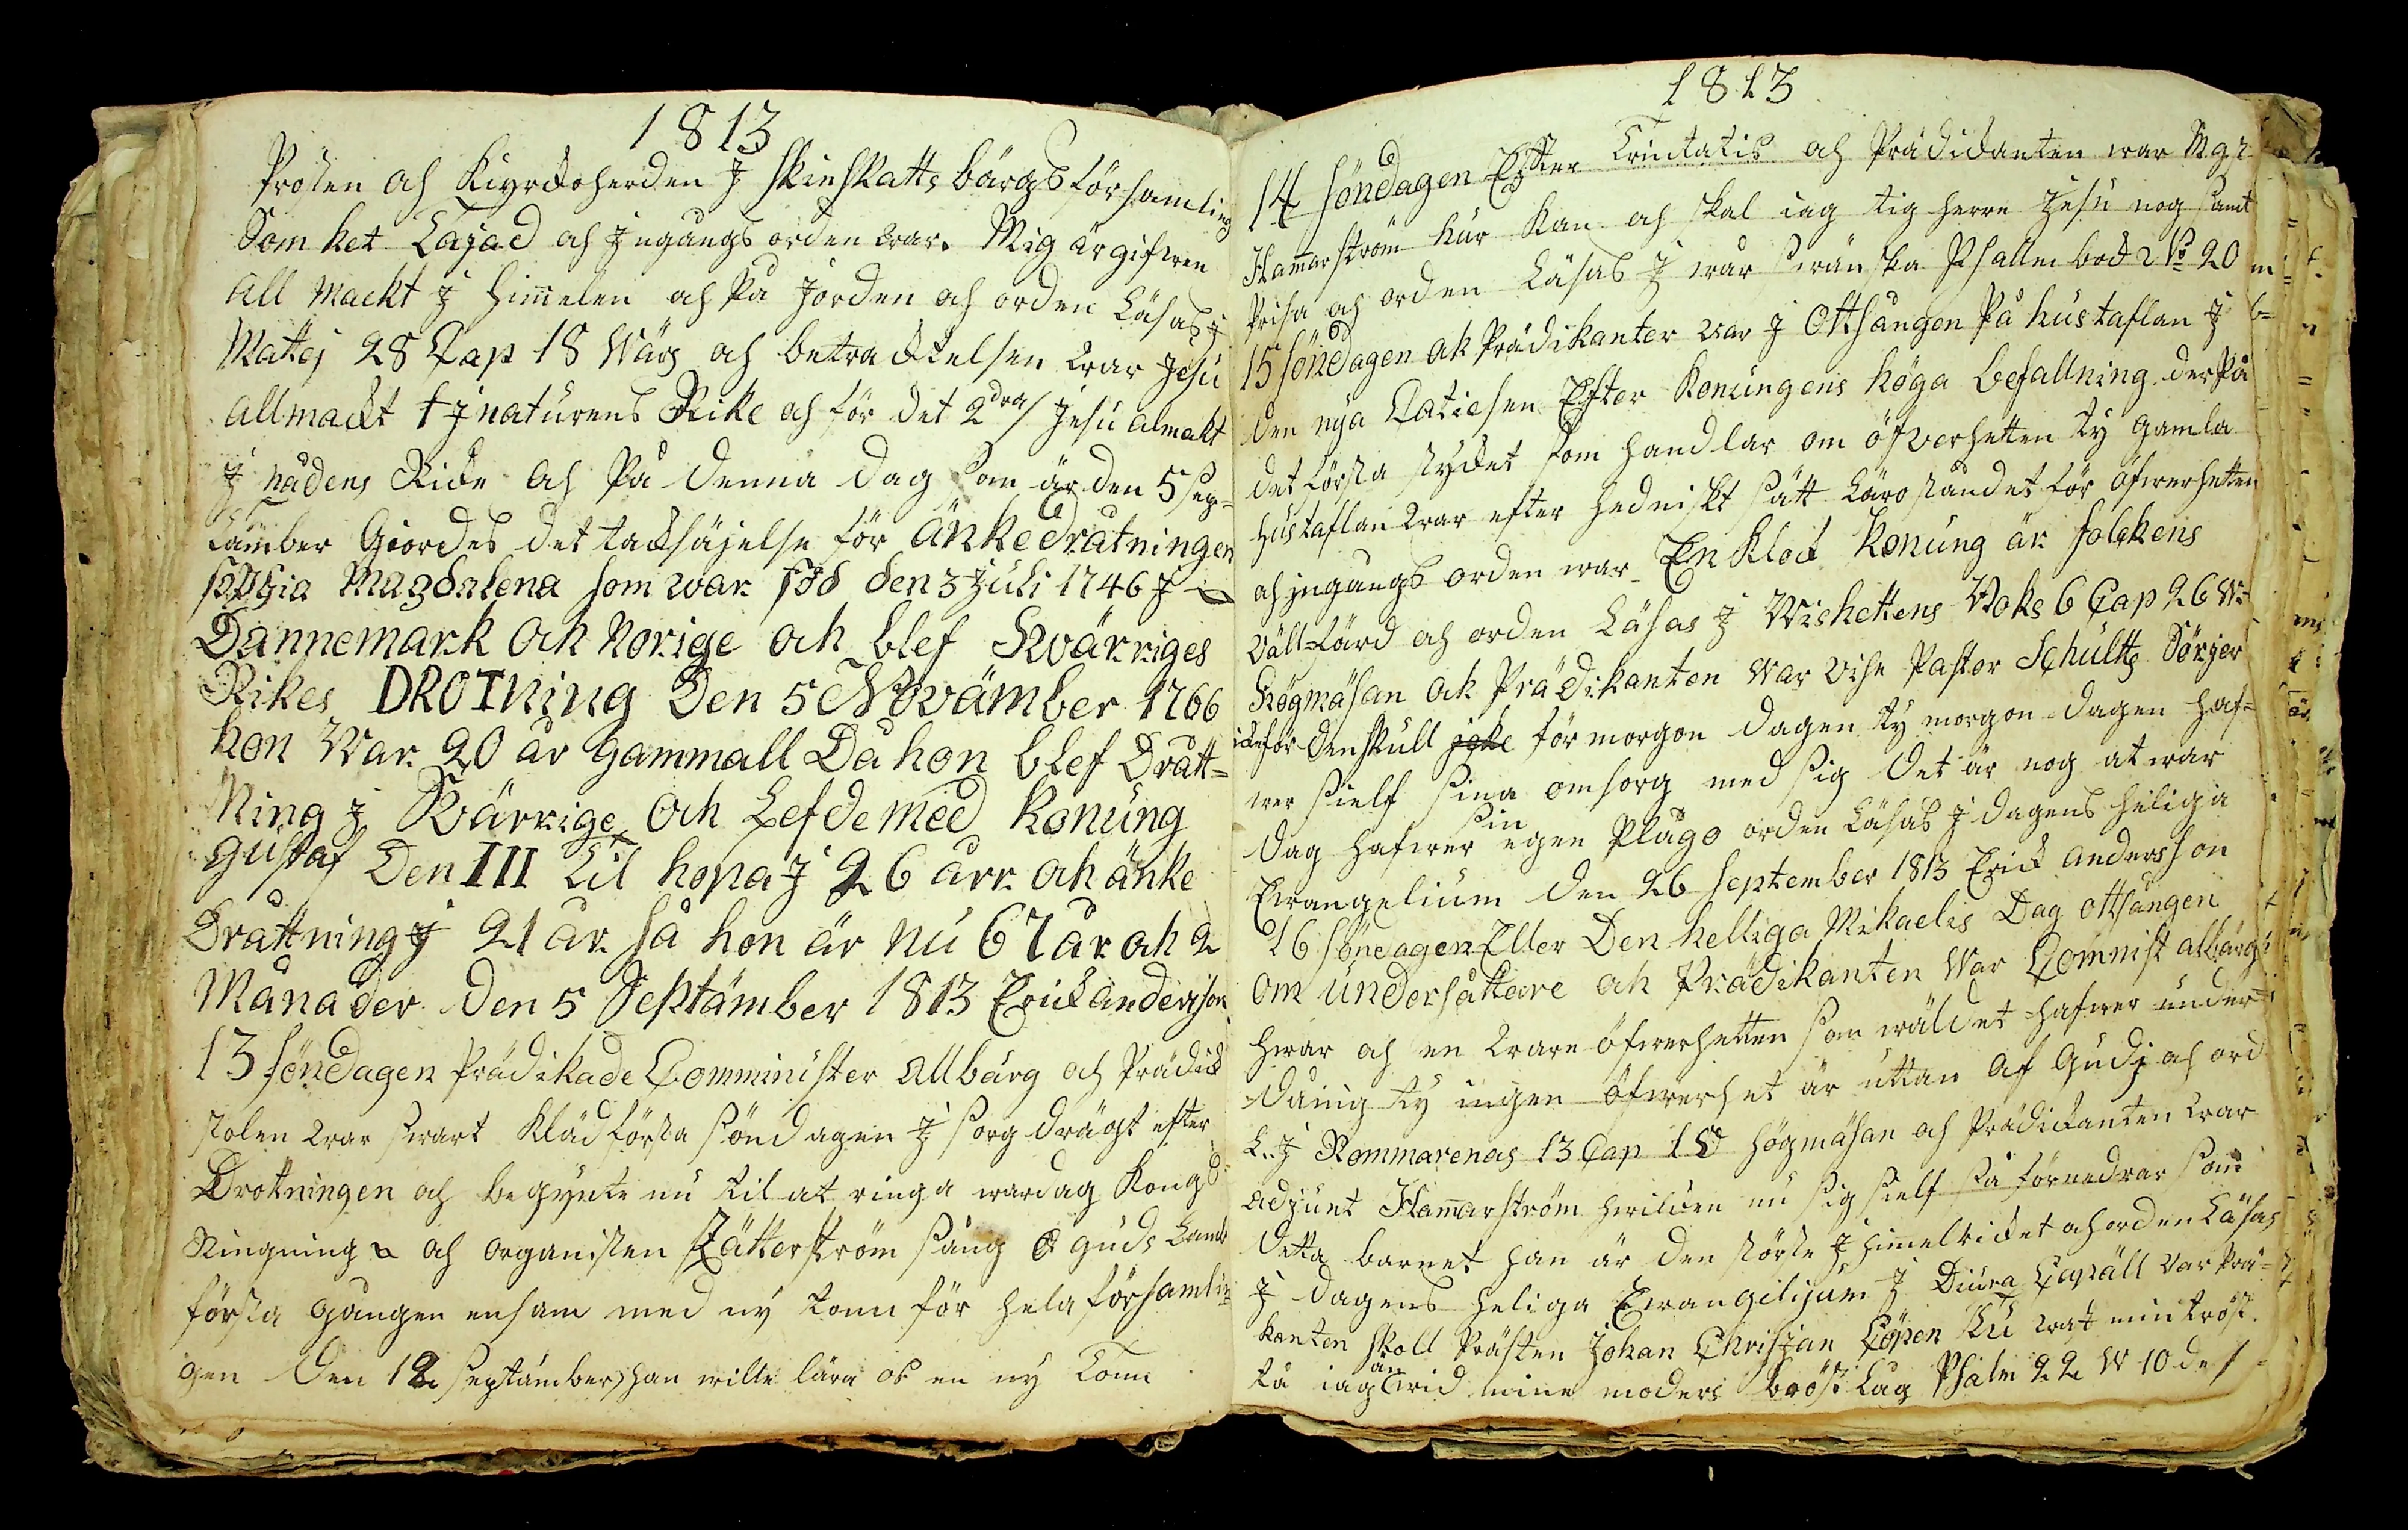 1813
Prosten och Kiyrckoherden J Skinskattsbärgs församling
Som het Lajad och Jngangs orden war. Mig är gifwen
All Mackt J Himmelen och på Jorden och orden Läsas J
Mattej 28 Cap 18 Värs och betracktelsen war Jesu
Allmackt t J naturens Rike och för det 2dra/ Jesu almakt
J nådens Rike och På denna dag som är den 5 Sep-
tämber Giordes det tacksäjelse för änkedråtningen
Sophia Magdalena som war född den 3 Juli 1746 J
Dannemark och Norige och blef Swärriges
Rikes DROTNing Den 5 Novämber 1766
hon War 20 år Gammall Då hon blef Drått=
Ning J Swärrige och Lefde med Konung
Gustaf Den III Til hopa J 26 årr och änke
Drattning J 21 år så hon är nu 67 år och 2
Månader den 5 Septämber 1813 Erick anderson
13 söndagen Prädikade Comminister Allbärg och Prädick
stolen war swart Kläd första söndagen J sorgdrägt efter
Drotningen och begynte nu til at ringa wardag Kongs
Ringning och organisten Zätterström sång O Guds Lamb
första gången ensam med ny tonn för hela församlin=
gen den 12 Septämber, han wille lära os en ny Tonn
1813
14 söndagen Efter Trintatis och Prädickanten war Mgr
Hamarström hur kan och skal iag tig Herre Jesu nogsamt
Prisa och orden Läsas J wår swänska Psallm bock No 20
15 söndagen ok Prädikanter war J Ottsången På hustaflan J
den nya Catiesen Efter Konungens höga befallning derpå
det första stycket som handlar om öfverhetten ty gamla
hustaflan war efter hedniskt sätt Lärostandet för öfwerhetten
och jngangs orden war En klock Konung är folckens
Vällfärd och orden Läsas J Vishettens Boks 6 Cap 26 W
Högmäsan ok Prädikanten War Vise Pastor Schultz Sörjer
icke för denskull icke för morgon dagen ty morgon dagen haf=
wer sielf sina omsorg med sig det är nog at war
dag hafwer sin egen Plågo orden Läsas J dagens heliga
Ewangelium den 26 September 1813 Erick Andersson
16 söndagen Eller Den helliga Mikaelis Dag ottsången
om undersåttare ok Prädikanten War Comnist allbärg
hwar och en ware öfwerhetten som wäldet hafwer under=
dånig ty ingen öfwerhet är uttan af Gudj och ord
L.. J Rommarenas 13 Cap 1 Högmäsan och Prädickanten war
adjunt Hamarström hwilcken nu sig sielf så förnedrar som
detta barnet han är den störste J Himelricket och orden Läsas
J dagens heliga Ewangelijum J Diura Capäll Var Prä=
kanten skoll Prästen Johan Christjan Löpen tu wast min tröst
tå iag än wid mine moders bröst Lag Psalm 22 W 10 de/